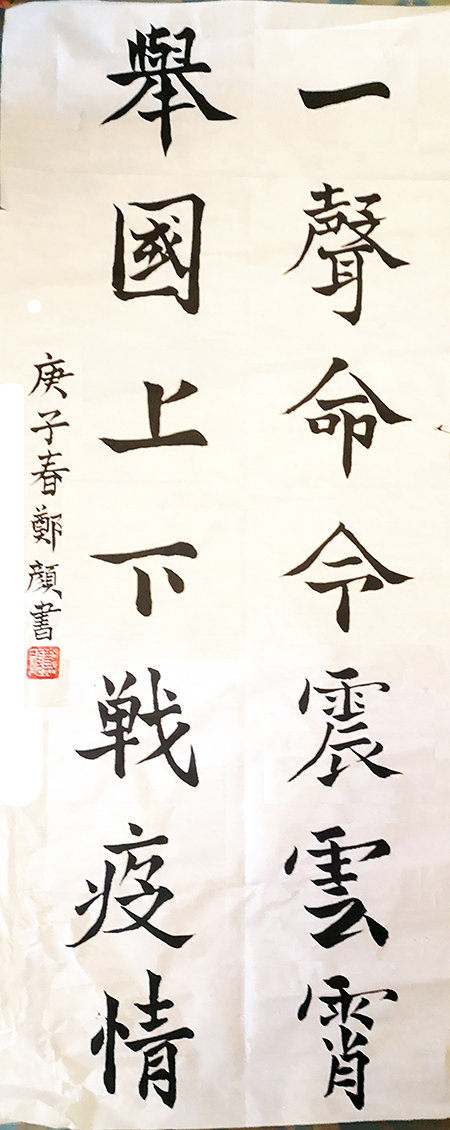 一聲命令震雲霄
舉國上下戦疫情
庚子春鄭顏書